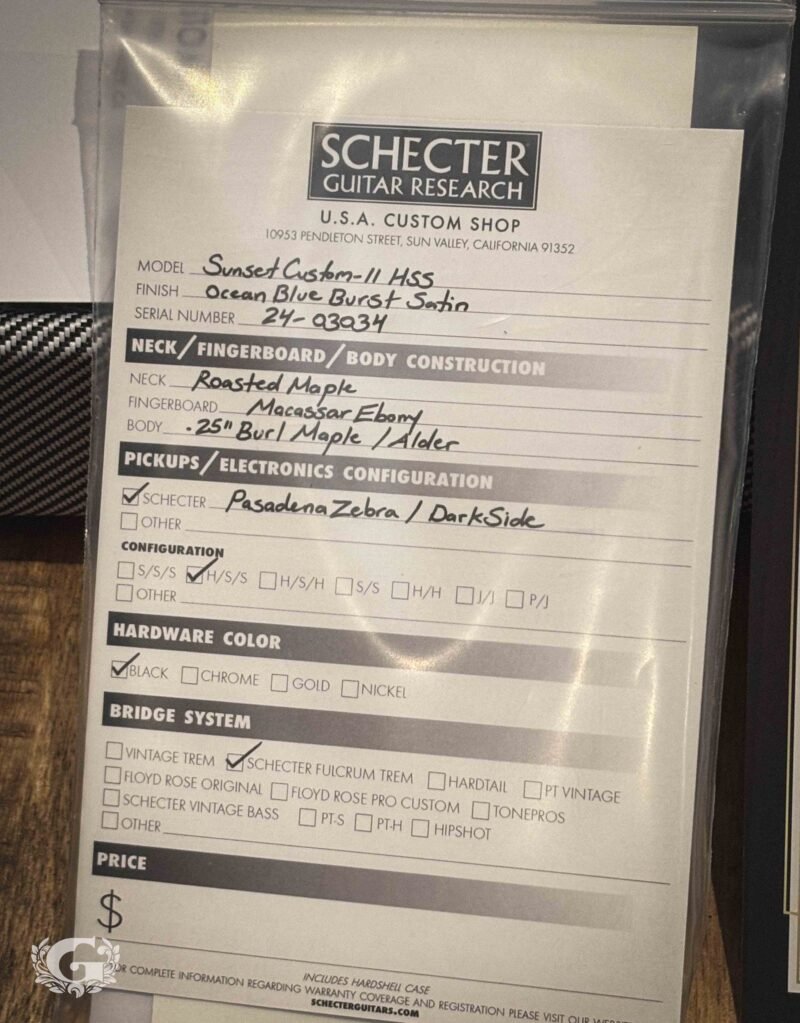 SCHECTER
GUITAR RESEARCH
U.S.A. CUSTOM SHOP
10953 PENDLETON STREET, SUN VALLEY, CALIFORNIA 91352
MODEL Sunset Custom-II HSS
FINISH Ocean Blue Burst Satin
SERIAL NUMBER 24-03034
NECK/FINGERBOARD/BODY CONSTRUCTION
NECK Roasted Maple
FINGERBOARD Macassar Ebony
BODY .25" Burl Maple / Alder
PICKUPS/ELECTRONICS CONFIGURATION
SCHECTER Pasadena Zebra / DarkSide
OTHER
CONFIGURATION
S/S/S H/S/S H/S/H S/S H/H J/J P/J
OTHER
HARDWARE COLOR
BLACK CHROME GOLD NICKEL
BRIDGE SYSTEM
VINTAGE TREM SCHECTER FULCRUM TREM HARDTAIL PT VINTAGE
FLOYD ROSE ORIGINAL FLOYD ROSE PRO CUSTOM TONEPROS
SCHECTER VINTAGE BASS PT-S PT-H HIPSHOT
OTHER
PRICE
$
INCLUDES HARDSHELL CASE
FOR COMPLETE INFORMATION REGARDING WARRANTY COVERAGE AND REGISTRATION PLEASE VISIT OUR
SCHECTERGUITARS.COM
G